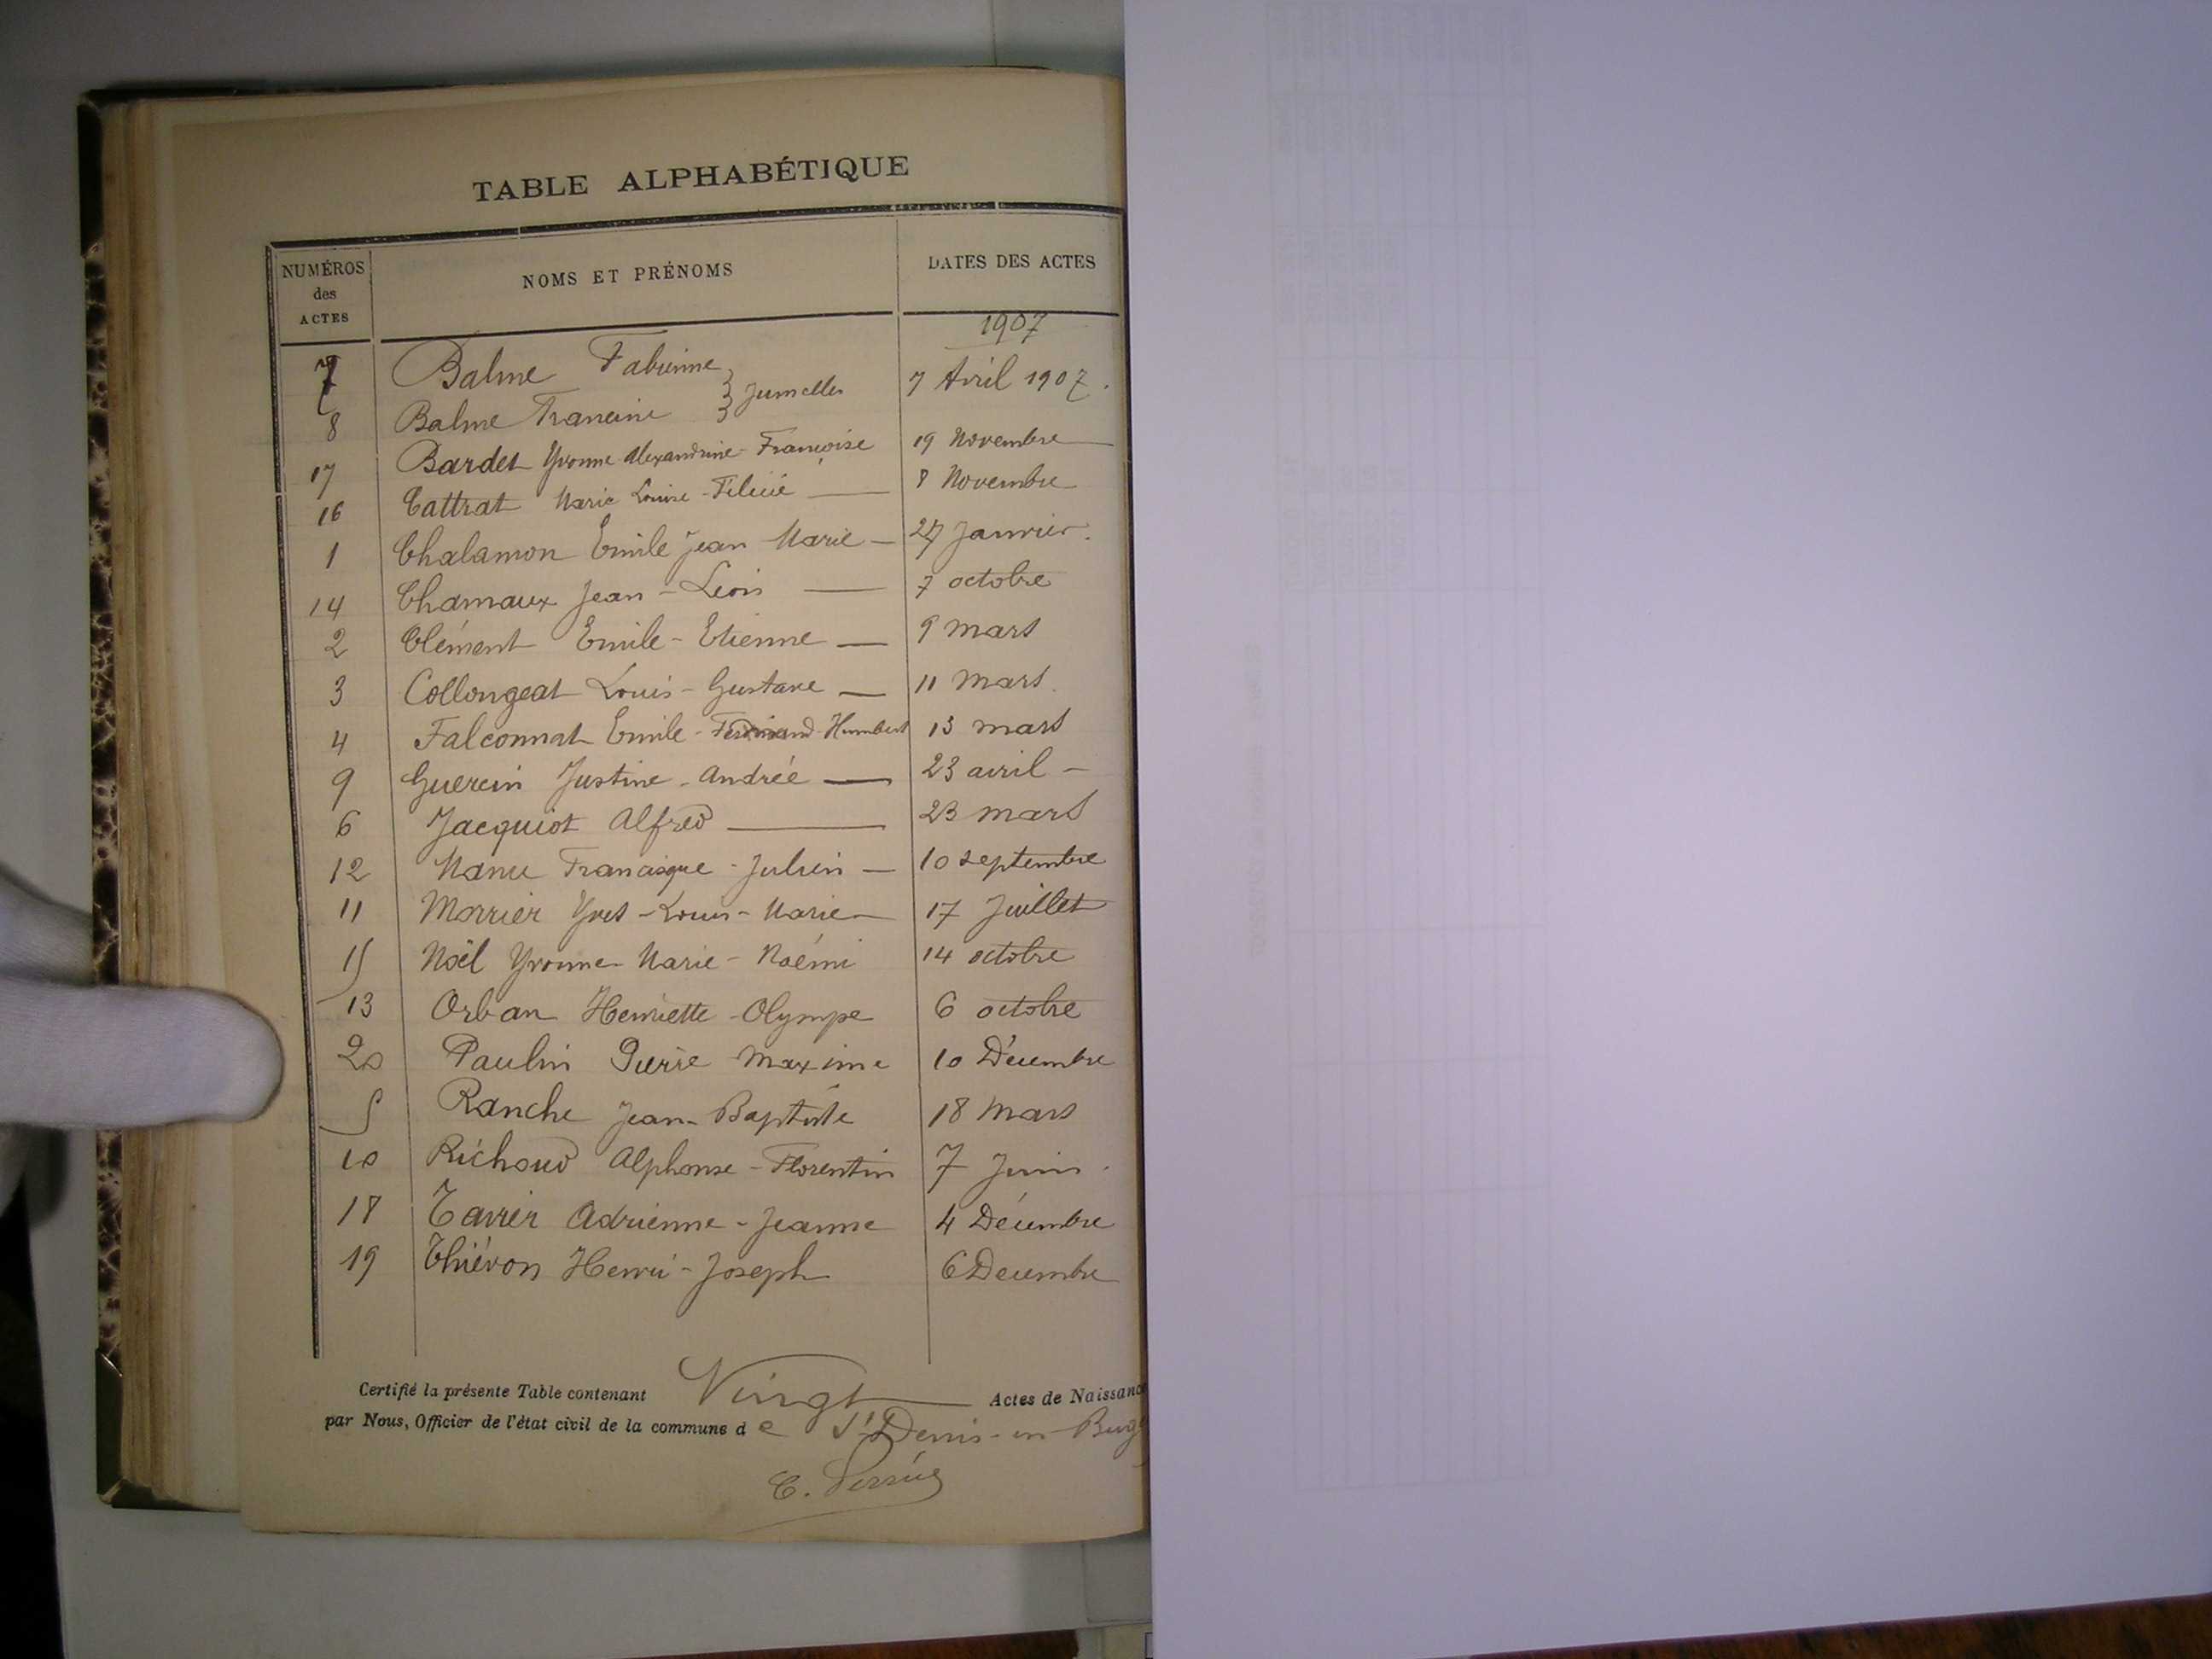 TABLE ALPHABÉTIQUE
NUMÉROS des ACTES NOMS ET PRÉNOMS DATES DES ACTES
1907
7 Balme Fabienne } Jumelles 7 Avril 1907.
8 Balme Francine
17 Bardet Yvonne Alexandrine Françoise 19 Novembre
16 Cattrat Marie Louise - Félicie — 8 Novembre
1 Chalamon Emile Jean Marie — 27 Janvier.
14 Chamaux Jean - Léon — 7 octobre
2 Clément Emile - Etienne — 9 mars
3 Collongeat Louis - Gustave — 11 Mars.
4 Falconnat Emile - Ferdinand - Humbert 13 mars
9 Guercin Justine - Andrée — 23 avril -
6 Jacquiot Alfred — 23 mars
12 Manu Francisque - Julien — 10 septembre
11 Morrier Yves - Louis - Marie — 17 Juillet
15 Noël Yvonne - Marie - Noémi 14 octobre
13 Orban Henriette - Olympe 6 octobre
20 Paulin Pierre Maxime 10 Décembre
5 Ranche Jean - Baptiste 18 Mars
10 Richoud Alphonse - Florentin 7 Juin.
18 Tavier Adrienne - Jeanne 4 Décembre
19 Thiévon Henri - Joseph 6 Decembre
Certifié la présente Table contenant Vingt Actes de Naissanc
par Nous, Officier de l'état civil de la commune de St Denis-en-Bugey